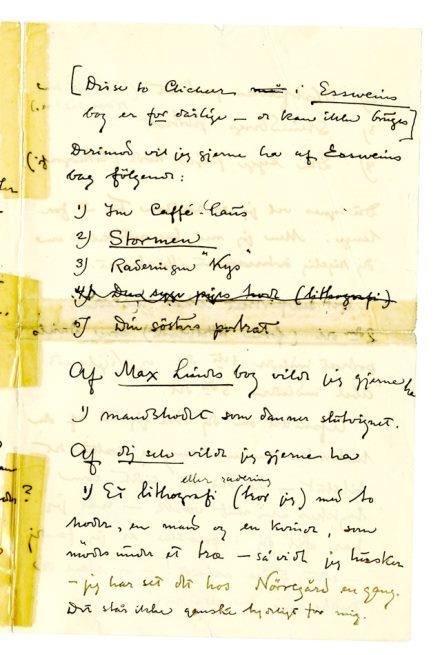 [Disse to Clicheer ~~må~~ i Essweins
bog er for dårlige – de kan ikke bruges]
Derimod vil jeg gjerne ha af Essweins
bog følgende:
1) Im Caffé-haus
2) Stormen
3) Raderingen "Kys"
4) Den syge piges hode (lithografi)
5) Din søsters portræt
Af Max Lindes bog vilde jeg gjerne ha
1) mandshodet som danner slutvignet.
Af dig selv vilde jeg gjerne ha
eller radering
1) Et lithografi (tror jeg) med to
hoder, en mand og en kvinde, som
mødes under et træ – såvidt jeg husker
– jeg har set det hos Nörregård engang.
Det står ikke ganske tydeligt for mig.